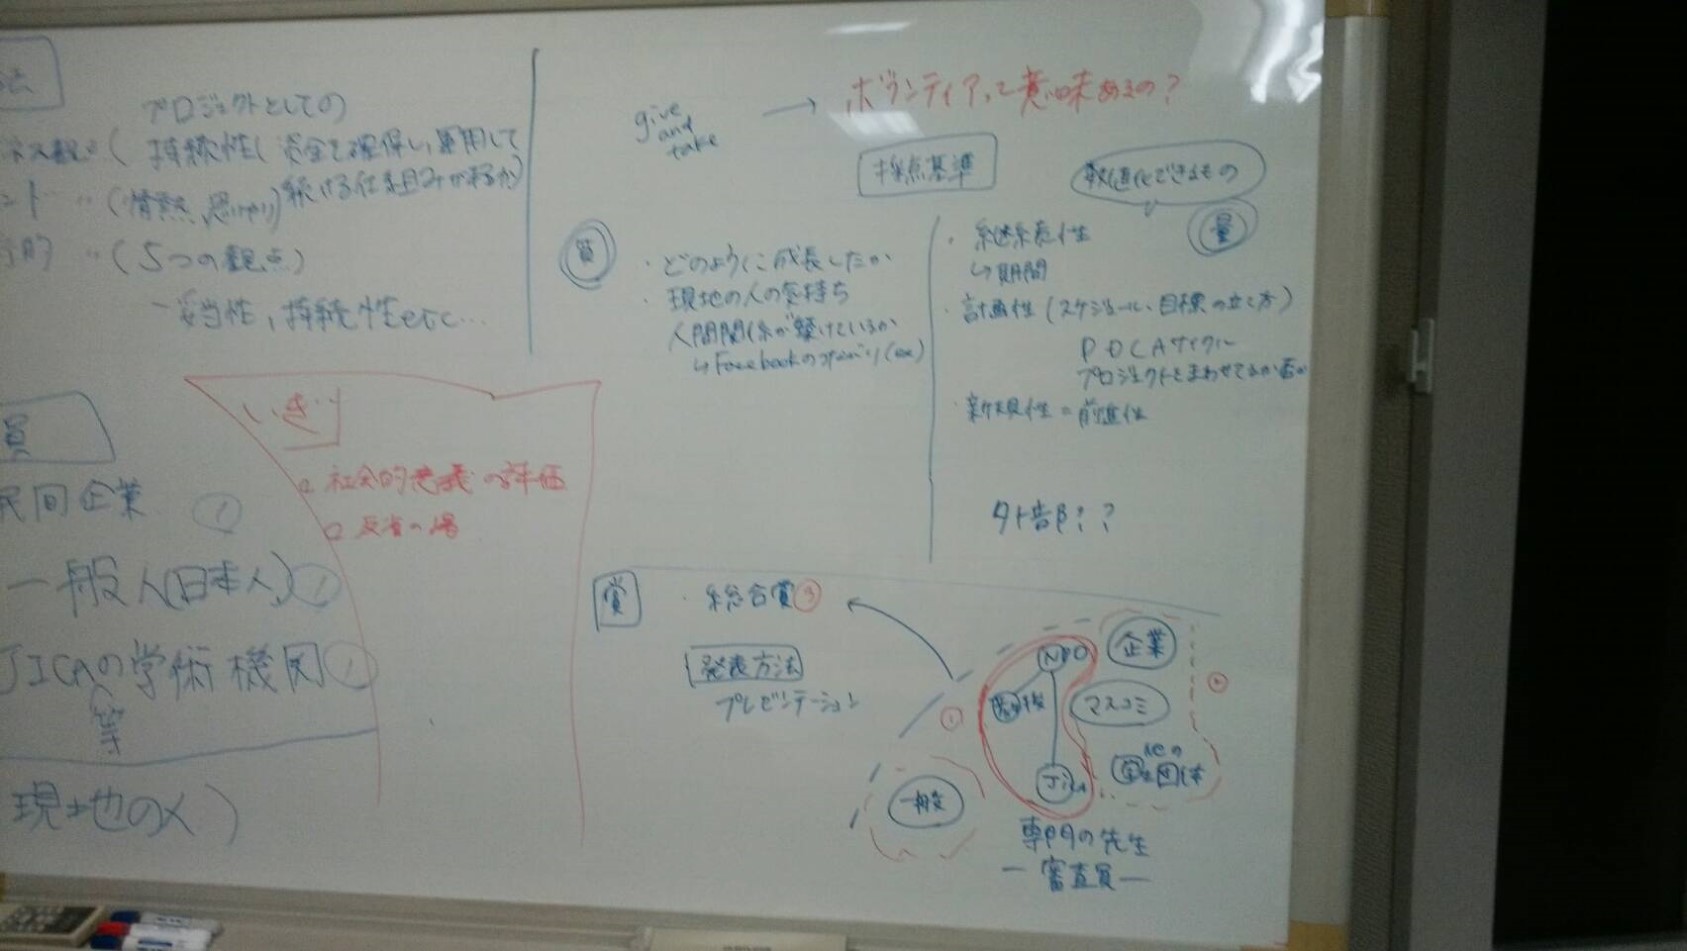 プロジェクトとしての
持続性(資金を確保し、運用して
続ける仕組みが有るか)
(情熱、思いやり)
〃(5つの観点)
妥当性,持続性etc...
員
民間企業 ①
一般人(日本人)①
JICAの学術機関①
等
現地の人)
社会的意義の評価
反省の場
give and take → ボランティアって意味あるの?
採点基準
数値化できるもの
質
・どのように成長したか
・現地の人の気持ち
人間関係が築けているか
↳Facebookの
量
・継続性
↳期間
・計画性(スケジュール、目標の立て方)
PDCAサイクル
プロジェクトをまわせてるか否か
・新規性=前進性
外部??
賞
・総合賞③
発表方法
プレゼンテーション
NPO
企業
マスコミ
JICA
一般
専門の先生
ー審査員ー